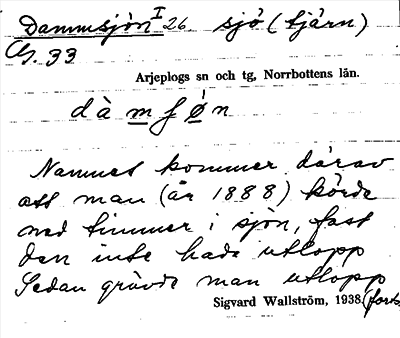 Dammsjön I 26 sjö (tjärn)
33
Arjeplogs sn och tg, Norrbottens län.
dàmʃø̀n
Namnet kommer därav
att man (år 1888) körde
ned timmer i sjön, fast
den inte hade utlopp
Sedan grävde man utlopp
Sigvard Wallström, 1938. (forts.